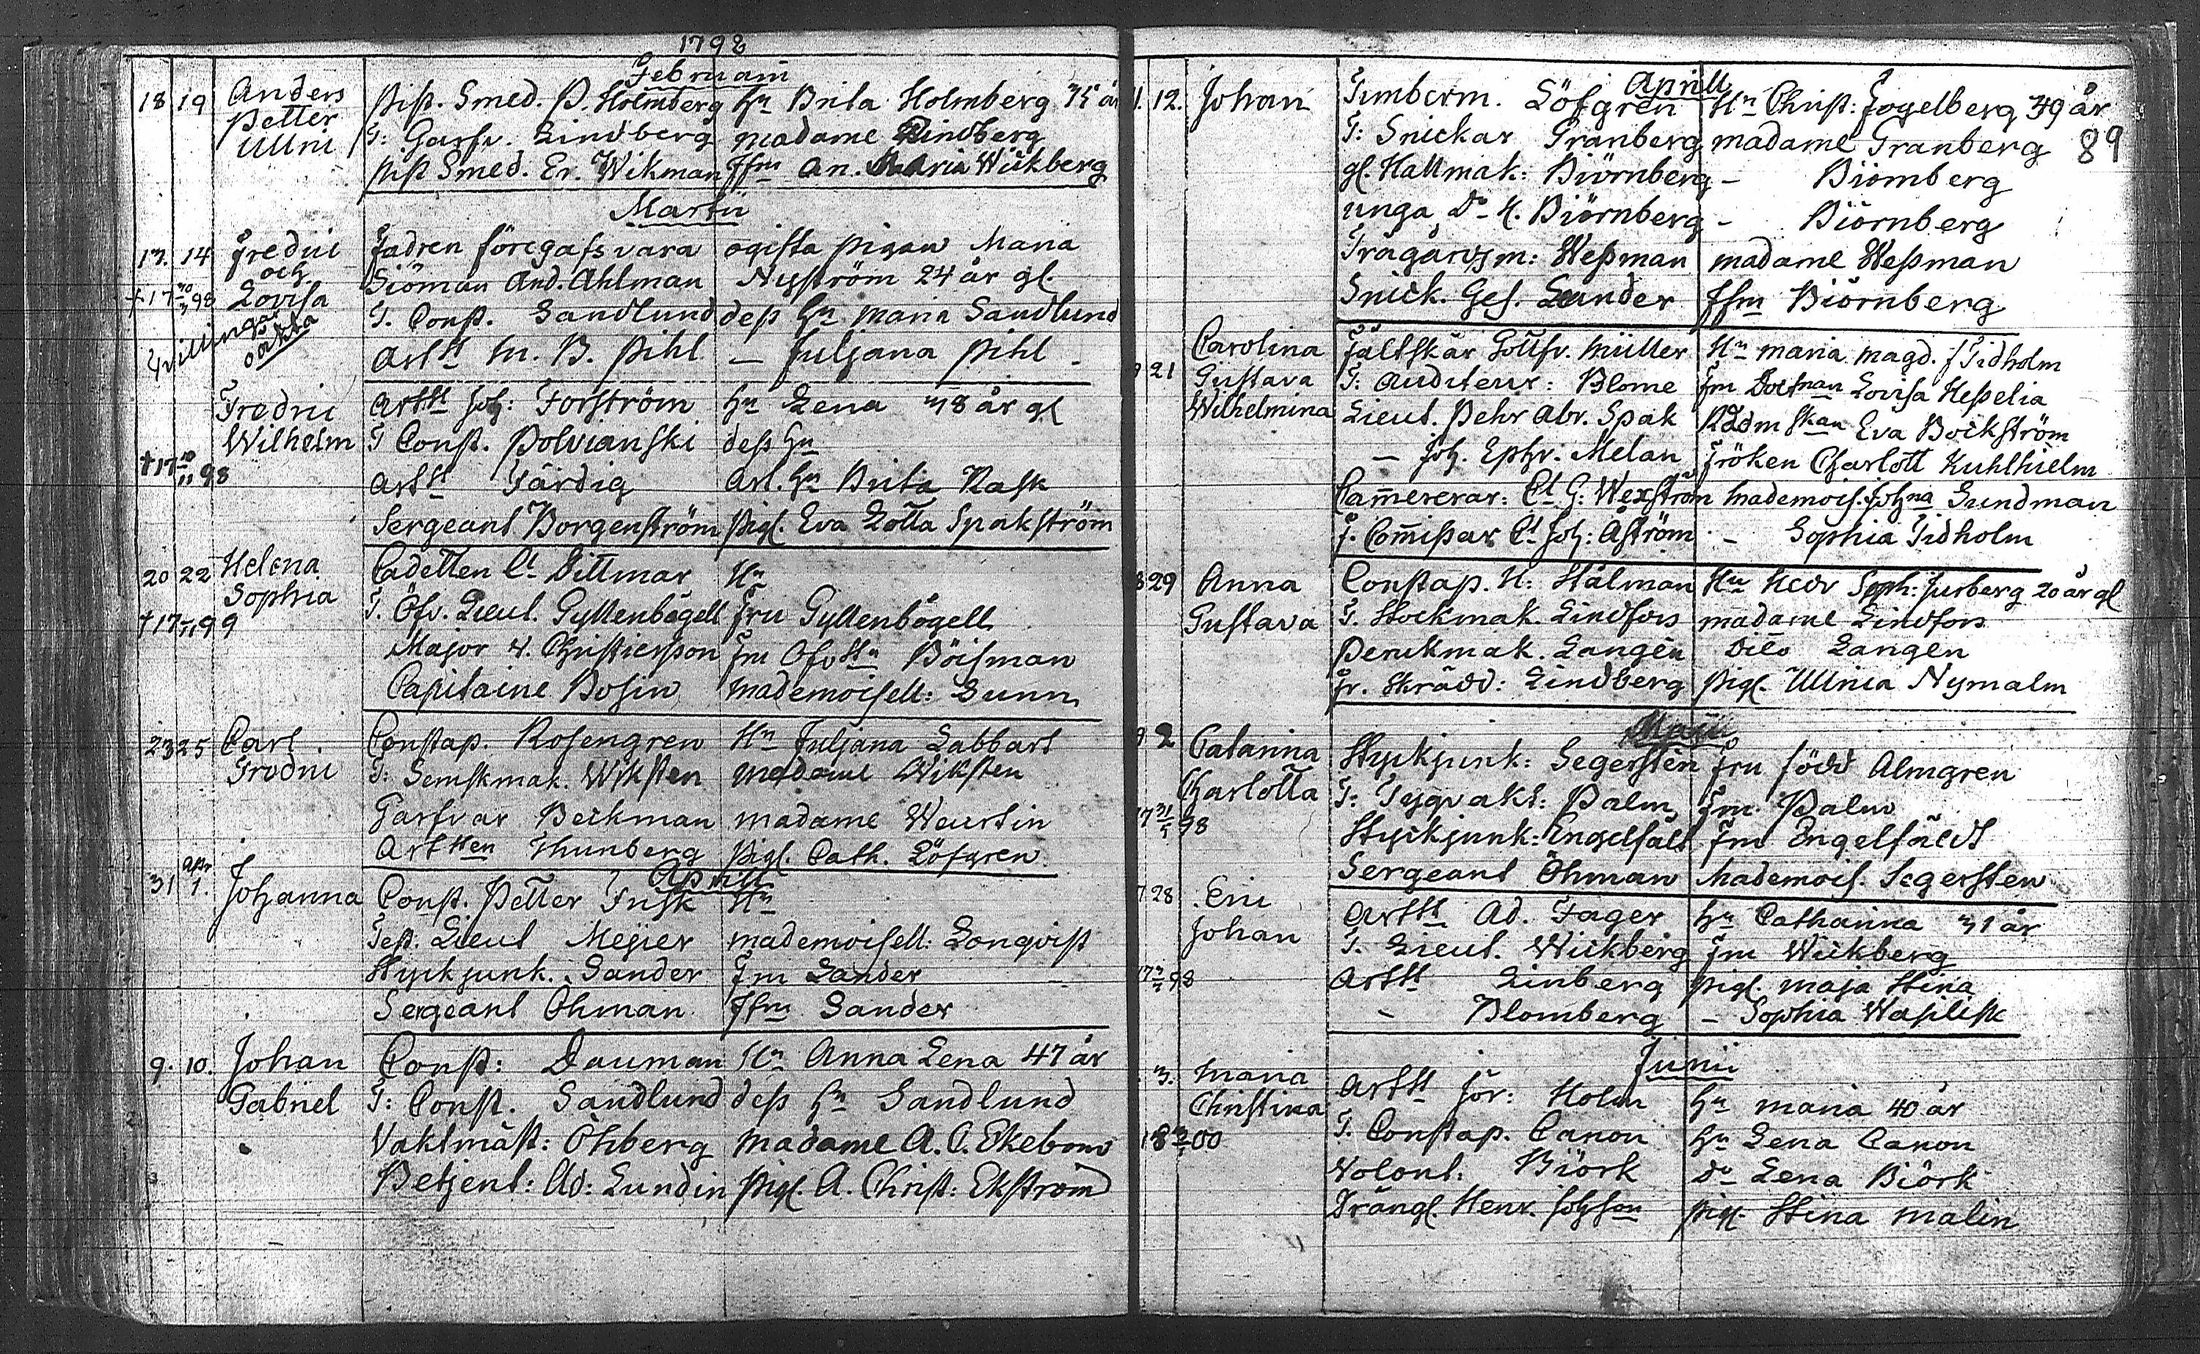 1798
Februarii
18. 19 Anders Pist. Smed. P. Holmberg Hu Brita Holmberg 35 år
Petter T: Garfv. Lindberg madame Lindberg
Ullric Pist Smed. Er. Wikman Jfru An. Maria Wickberg
Martii
13. 14 Fredric Fadren föregafs vara ogifta pigan Maria
och Siöman And. Ahlman Nyström 24 år gl
†17 98 Lovisa T. Const. Sandlund dess Hu Maria Sandlund
Tvillingar oäkta Artst M. B. Pihl — Juljana Pihl
Fredric Artst Joh: Forström Hu Lena 38 år gl
Wilhelm T Const. Polvianski dess Hu
†17 98 Artst Färdig Art. Hu Brita Rask
Sergeant Borgenström Pigl. Eva Lotta Spakström
20 22 Helena Cadetten Ct Dittmar Hu
Sophia T. Öfv. Lieut. Gyllenbögell Fru Gyllenbögell
†17 99 Major v. Christiersson Fru Öfvstn Böisman
Capitaine Bosin Mademoisell: Gunn
23 25 Carl Constap. Rosengren Hu Juljana Labbart
Fredric T: Semskmak. Wiksten madame Wiksten
Garfvar Beckman madame Weurtin
Artsten Thunberg Pigl. Cath. Löfgren
Aprill
31 Apr 1. Johanna Const. Petter Frisk Hu
Test. Lieut Meijer mademoisell: Lonqvist
Styckjunk. Sander Fru Sander
Sergeant Öhman Jfru Sander
9. 10. Johan Const: Dauman Hu Anna Lena 47 år
Gabriel T: Const. Sandlund dess Hu Sandlund
Vaktmäst: Öhberg Madame A. C. Ekebom
Betjent: Ad: Lundin Pigl. A. Christ: Ekström
Aprill
12. Johan Timberm. Löfgren Hu Christ: Fogelberg 39 år
T: Snickar Granberg madame Granberg
89
gl. Hattmak: Biörnberg — Biörnberg
unga Do H. Biörnberg — Biörnberg
Trägårdsm: Wessman madame Wessman
Snick. Ges. Lunder Jfru Biörnberg
21 Carolina Fältskär Gottfr. Müller Hu Maria Magd. f Tidholm
Gustava T: Auditeur: Blome Fru Lovisa Hesselia
Wilhelmina Lieut. Pehr Abr. Spak Eva Bockström
— Joh. Ephr. Melan Fröken Charlott Kuhlhielm
Camererar: Ct G: Wexström Mademois. Johna Sundman
f. Comissar Ct Joh: Åström — Sophia Tidholm
29 Anna Constap. H: Hälman Hu Hedv Soph: Jusberg 20 år gl
Gustava T. Stockmak Lindfors madame Lindfors
Perukmak. Langén Dito Langén
fr. Skrädd: Lindberg Pigl. Ullrica Nymalm
Maii
2 Catarina Styckjunk: Segersten Fru född Almgren
Charlotta T: Tygvakt: Palm Fru Palm
98 Styckjunk: Engelfält Fru Engelfäldt
Sergeant Öhman Mademois. Segersten
28 Eric Artst Ad. Fager Hu Catharina 31 år
Johan T. Lieut. Wickberg Fru Wickberg
98 Artst Linberg Pigl. Maja Stina
— Blomberg — Sophia Wasilisk
Junii
3. Maria Artst Jör: Holm Hu Maria 40 år
Christina T. Constap. Canon Hu Lena Canon
18 00 Volont: Biörk Do Lena Biörk
Drängl Henr. Johson Pigl. Stina Malin